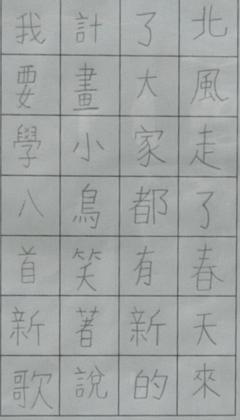 北風走了春天來
了大家都有新的
計畫小鳥笑著說
我要學八首新歌